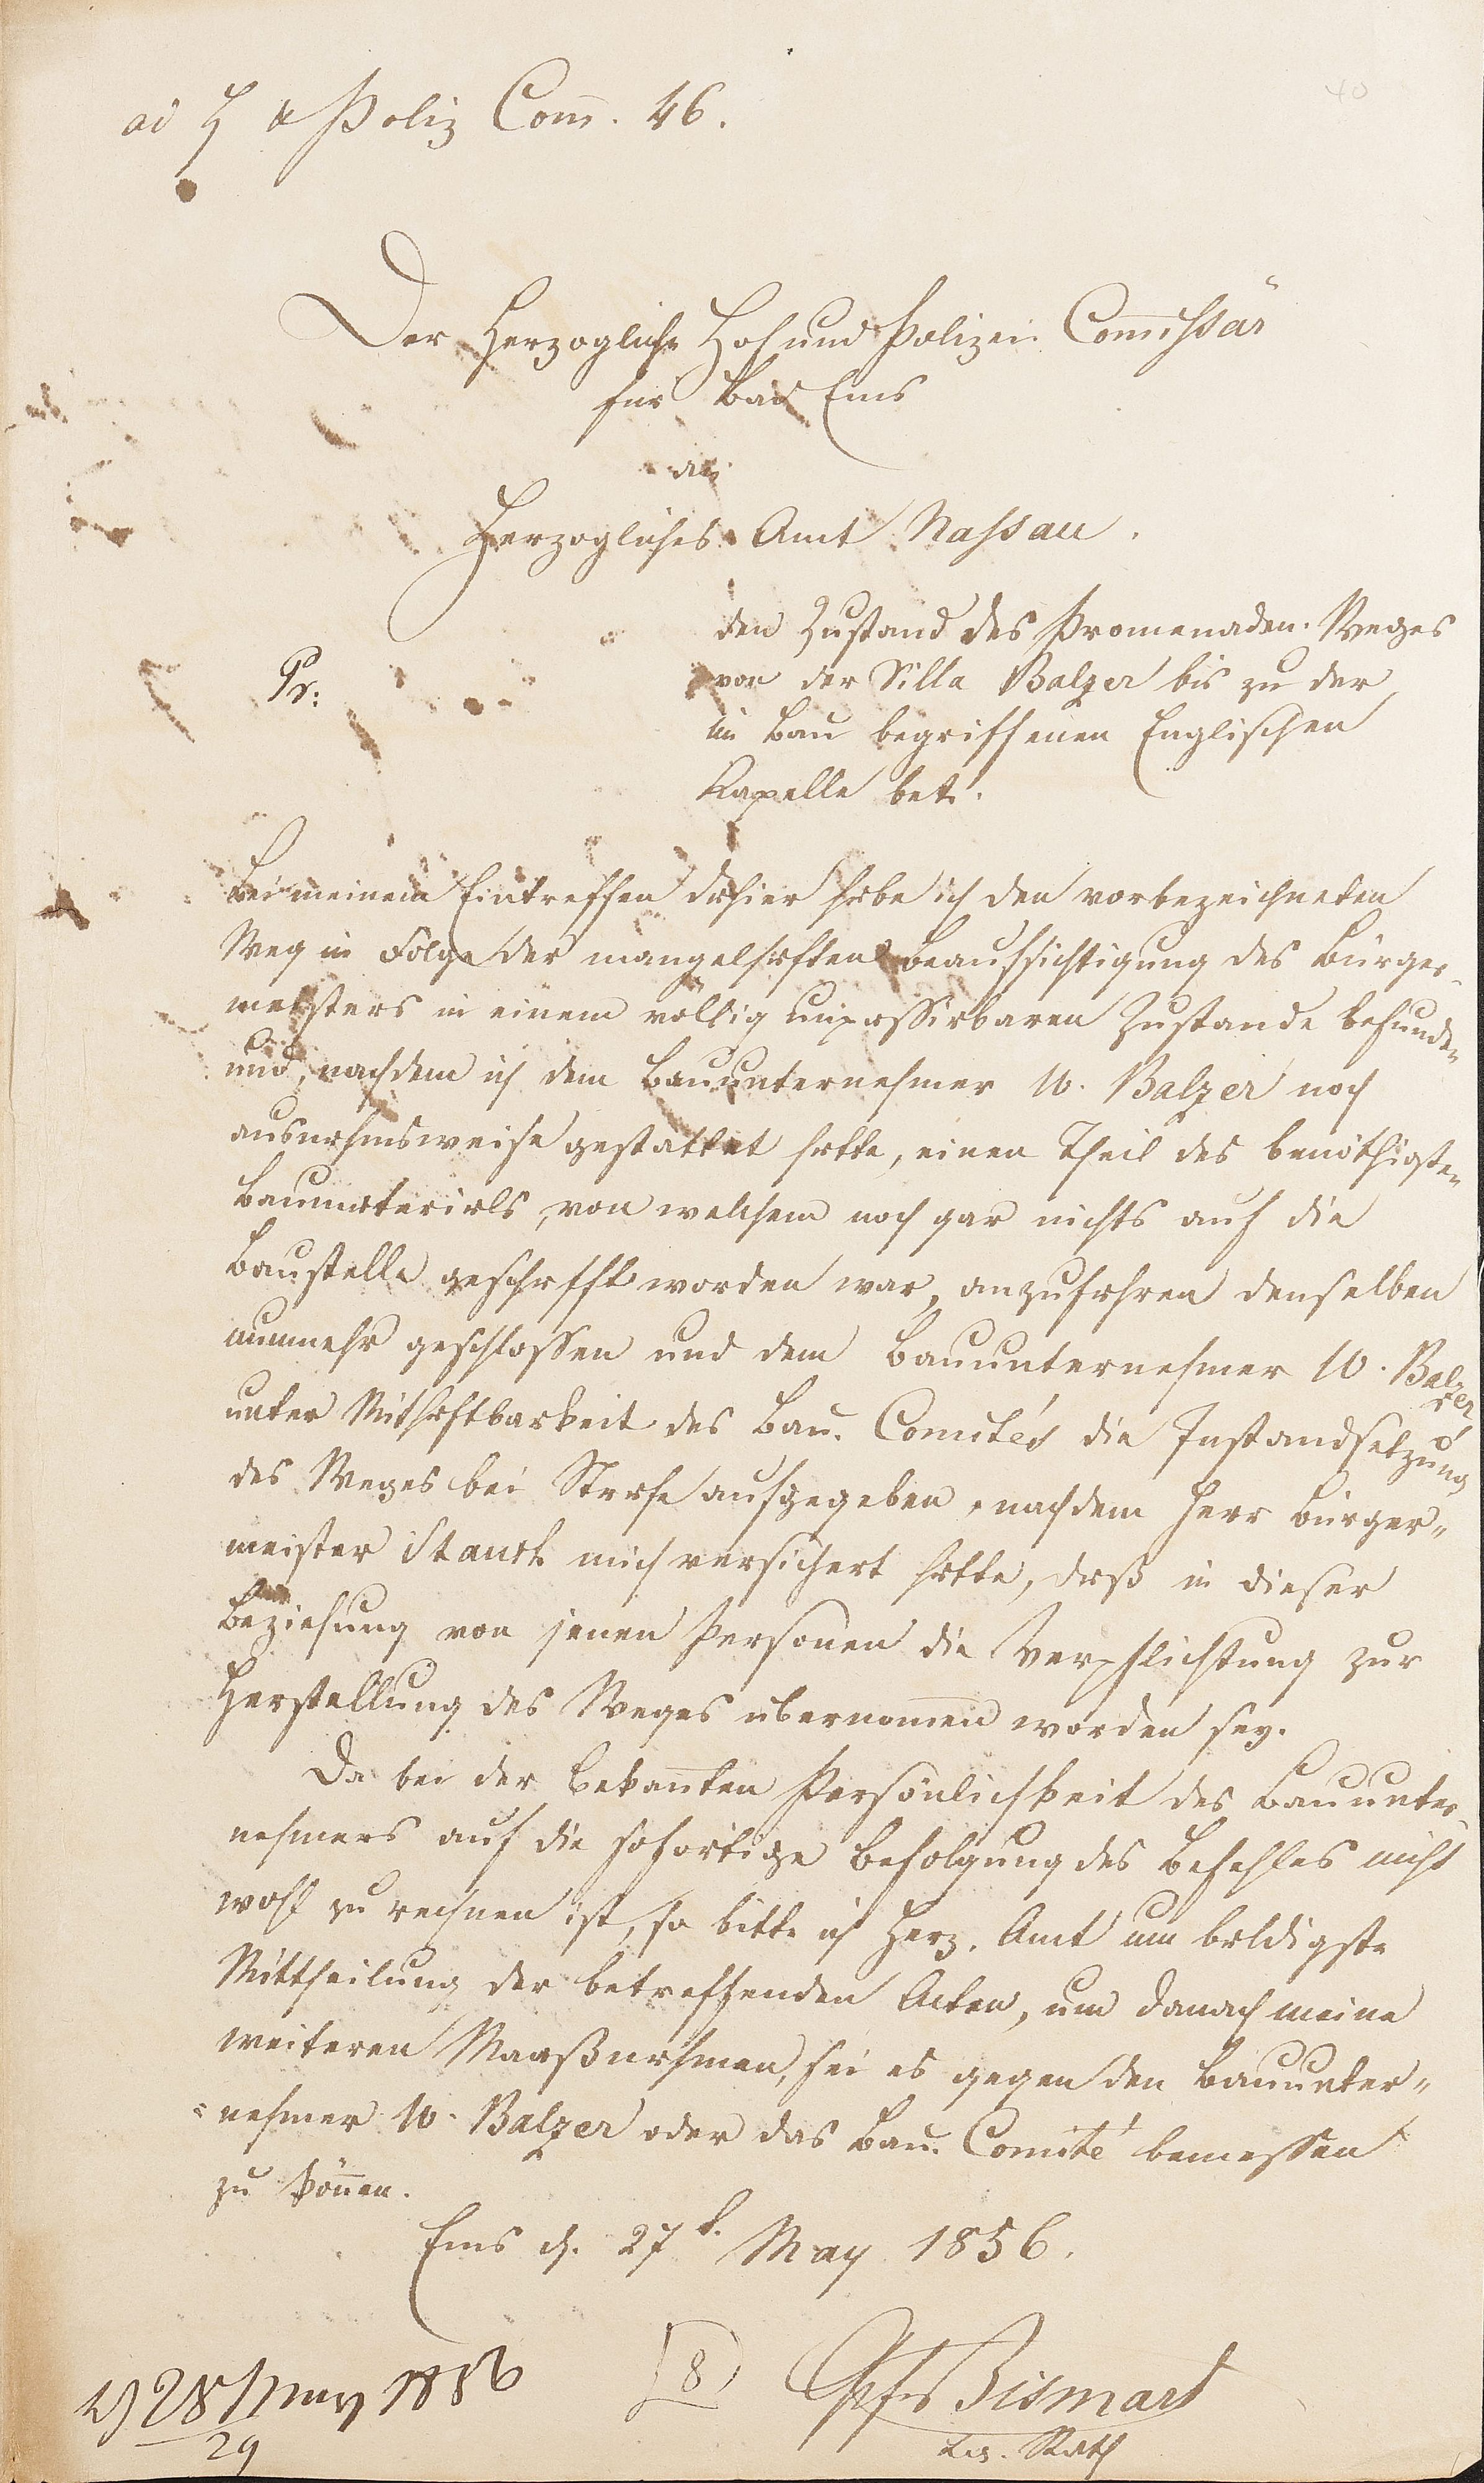 40
ad H & Poliz Com̄. 46.
Der Herzogliche Hof und Polizei Com̄issär
für Bad Ems
an
Herzogliches Amt Nassau.
den Zustand des Promenaden-Weges
Pr:
von der Villa Balzer bis zu der
im Bau begriffenen Englischen
Kapelle betr.
Bei meinem Eintreffen dahier habe ich den vorbezeichneten
Weg in Folge der mangelhaften Beaufsichtigung des Bürger-
meisters in einem völlig unpassirbaren Zustande befunden
und, nachdem ich dem Bauunternehmer W. Balzer noch
ausnahmsweise gestattet hatte, einen Theil des benöthigten
Baumaterials, von welchem noch gar nichts auf die
Baustelle geschafft worden war, anzufahren denselben
nunmehr geschlossen und dem Bauunternehmer W. Balzer
unter Mithaftbarkeit des Bau-Comités die Instandsetzung
des Weges bei Strafe aufgegeben, nachdem Herr Bürger-
meister mich versichert hatte, daß in dieser
Beziehung von jenen Personen die Verpflichtung zur
Herstellung des Weges übernom̄en worden sey.
Da bei der bekan̄ten Persönlichkeit des Bauunter-
nehmers auf die sofortige Befolgung des Befehles nicht
wohl zu rechnen ist, so bitte ich Herz. Amt um baldigste
Mittheilung der betreffenden Acten, um danach meine
weiteren Maaßnahmen, sei es gegen den Bauunter-
=nehmer W. Balzer oder das Bau-Comité bemessen
zu kön̄en.
Ems d. 27t. May 1856.
28 May 1856
29
8
Bismark
Leg. Rath